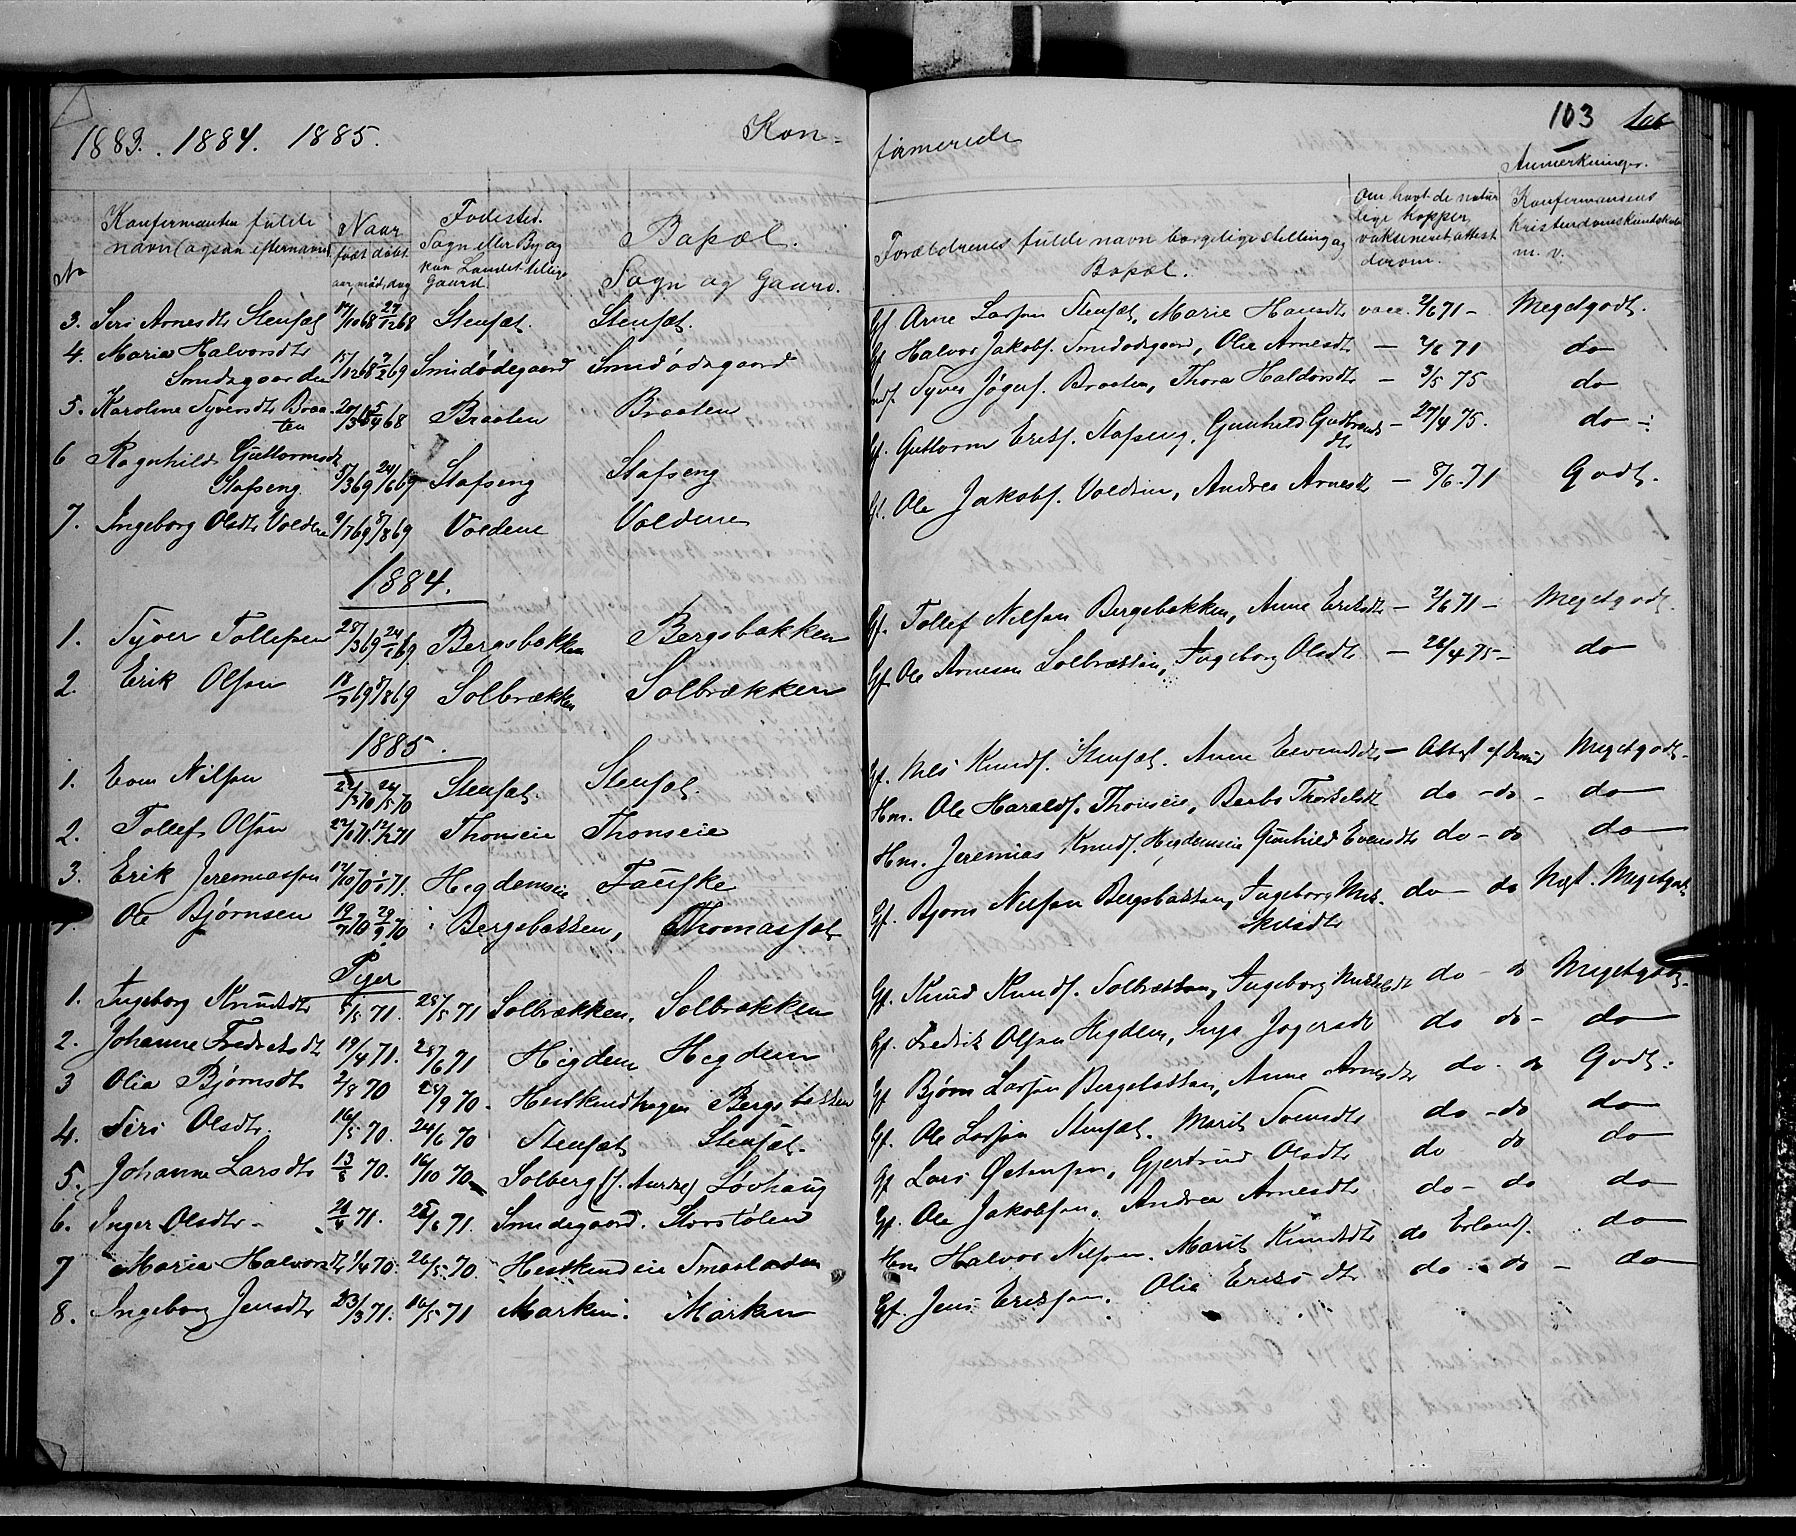 1883. 1884. 1885. Kon- firmerede 103
Anmerkninger.
No Konfirmanten fulde navn (ogsaa efternavn) Naar født døbt aar, mød, dag Fødested. Sogn eller By og paa Landet tillige Gaard. Bopæl. Sogn og Gaard. Forældrenes fulde navn borgerlige stilling og Bopæl. Om havt de naturlige kopper, vaksineret attest derom. Konfirmandens kristendomskundskab m. v.
3. Siri Arnesdtr Stensæt 17/10 68 27/12 68 Stensæt. Stensæt. Gf Arne Larsen Stensæt, Marie Hansdtr vacc. 2/6 71 - Megetgodt.
4. Maria Halvorsdtr Smedsgaarden 15/12 68 7/2 69 Smidødegaard Smidødegaard Gf Halvor Jakobs. Smidødegaard, Olia Arnesdtr - 2/6 71 do
5. Karoline Syversdtr Braaten 20/3 68 5/4 68 Braaten Braaten Syver Jøgers. Braaten, Thora Haldorsdtr - 3/5 75 do
6 Ragnhild Guttormsdtr Stafseng 5/3 69 24/6 69 Stafseng Stafseng Gf. Guttorm Eriks. Stafseng, Gunhild Gudbrandsdtr - 27/4 75. do -
7. Ingeborg Olsdtr Voldene 9/7 69 8/8 69 Voldene Voldene Gf. Ole Jakobs. Voldene, Andrea Arnesdtr - 8/6 71 Godt.
1884.
1. Syver Tollefsen 28/3 69 24/5 69 Bergsbakken Bergsbakken Gf. Tollef Nilsen Bergsbakken, Anne Eriksdtr - 2/6 71 - Megetgodt.
2. Erik Olsen 18/7 69 8/8 69 Solbrækken Solbrækken Gf. Ole Arnesen Solbrækken, Ingeborg Olsdtr - 26/4 75 - do
1885.
1. Even Nilsen 24/5 70 Stensæt. Stensæt. Gf. Nils Knuds. Stensæt. Anne Eevindsdtr - Attest Megetgodt -
2. Tollef Olsen 12/2 71 Thonseie Thonseie Hm. Ole Haralds. Thonseie, Berbo Thorkelsdtr do - do - do
3. Erik Jeremiassen 17/10 70 1/1 71. Hegdenseie Fauske Hm. Jeremias Knuds. Hegdenseie Gunhild Evensdtr do - do do
Ole Bjørnsen 19/7 70 29/9 70 Bergsbakken, Thomassæt Gf. Bjørn Nilsen Bergsbakken, Ingeborg Mikkelsdtr do - do Megetgodt
Piger
1. Ingeborg Knudsdtr 5/5 71. 28/5 71 Solbrækken. Solbrækken Gf. Knud Knuds. Solbrækken, Ingeborg Mikkelsdtr do - do Megetgodt -
2. Johanne Fredriksdtr 19/4 71. 25/6 71 Hegdem Hegdem Gf. Fredrik Olsen Hegdem, Inga Jøgersdtr do do - do
3 Olia Bjørnsdtr 2/8 70 25/9 70. Hestkindhagen Bergsbakken Gf Bjørn Larsen Bergsbakken, Anne Arnesdtr do. do Godt.
4. Siri Olsdtr. 16/5 70. 24/6 70 Stensæt Stensæt. Gf. Ole Larsen Stensæt. Marit Svensdtr do - do do
5. Johanne Larsdtr 13/8 70. 16/10 70 Solberg (S. Aurdal) Løvhaug Gf Lars Østensen, Gjertrud Olsdtr do do do
6. Inger Olsdtr - 71. 25/6 71. Smedegaard. Storstølen Gf. Ole Jakobsen. Andrea Arnesdtr do - do do
7 Maria Halvorsdtr 21/4 70. 26/5 70. Hestkindeie Smaaladen Hm Halvor Nilsen. Marit Knudsdtr do Erlands. do
8. Ingeborg Jensdtr 23/3 71. 16/5 71 Marken. Marken Gf. Jens Eriksen. Olia Eriksdtr do - do - do